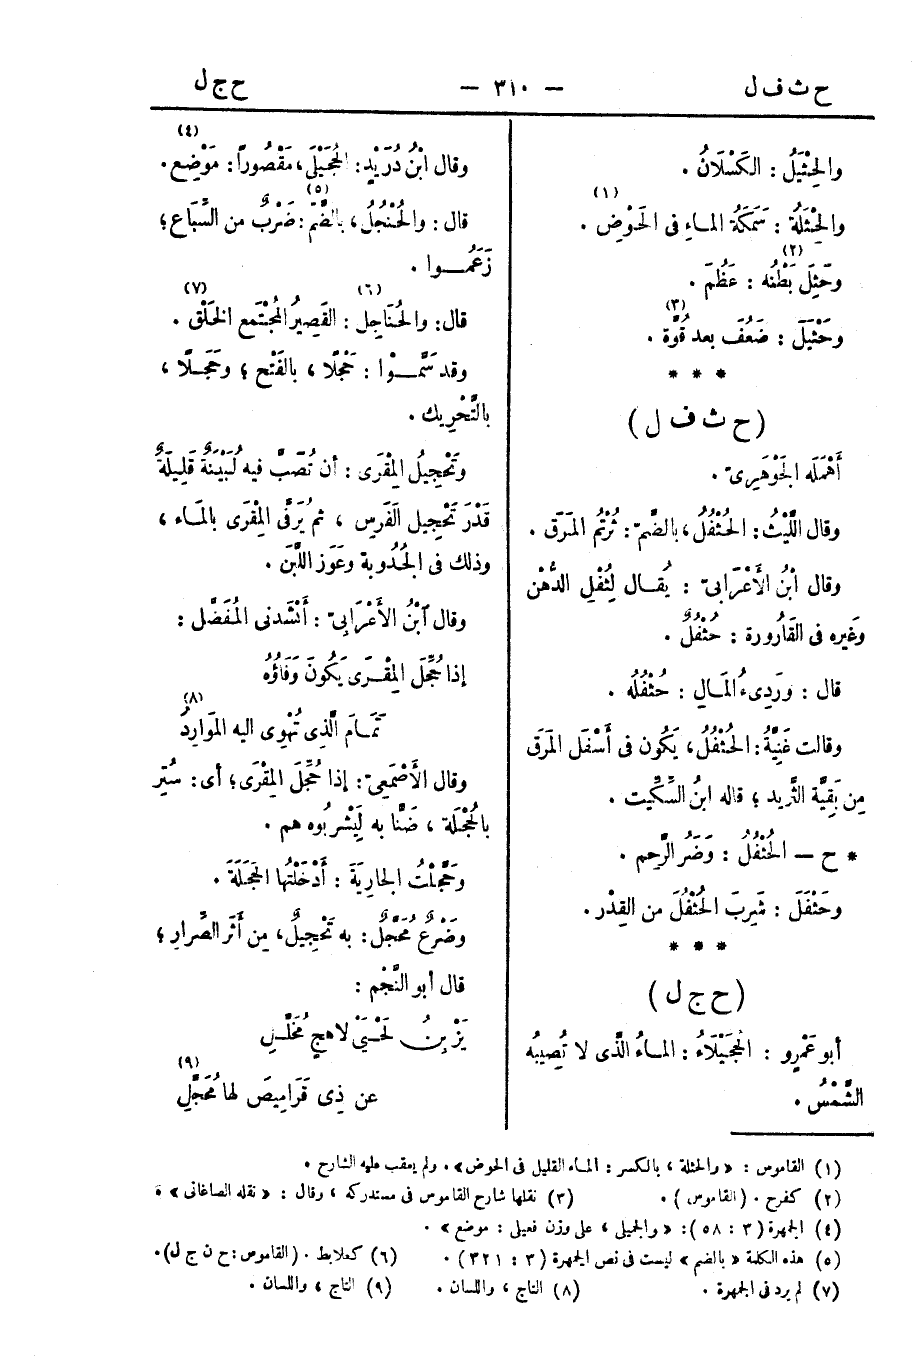 ح ث ف ل
— ٣١٠ —
ح ج ل
والحِثْيَلُ : الكَسْلَانُ .
والحِثْلَةُ : سَمَكَةُ الماءِ فى الحَوْضِ . (١)
وحَثِلَ بَطْنُه : عَظُمَ . (٢)
وحَثْيَلَ : ضَعُفَ بعد قُوَّة . (٣)
* * *
( ح ث ف ل )
أَهْمَلَه الجَوْهَرِىّ .
وقال اللَّيْثُ : الحُثْفُلُ ، بالضّمّ : ثُرْتُم المَرَق .
وقال ابنُ الأَعْرَابىّ : يُقــال لِثُفْلِ الدُّهْنِ
وغَيرِه فى القَارُورة : حُثْفُلٌ .
قال : ورَدِىءُ المَـالِ : حُثْفُلُه .
وقالت غَنِيَّةُ : الحُثْفُلُ ، يَكُون فى أَسْفَل المَرَق
مِن بَقِيَّة الثَّرِيد ؛ قاله ابنُ السِّكِّيت .
* ح — الحُثْفُلُ : وَضَرُ الرَّحِمِ .
وحَثْفَلَ : شَرِبَ الحُثْفُلَ من القِدْر .
* * *
( ح ج ل )
أبو عَمْرٍو : الحُجَيْلَاءُ : المــاءُ الَّذى لا تُصِيبُه
الشَّمْسُ .
وقال ابْنُ دُرَيْدٍ : الحُجَيْلَى ، مَقْصُوراً : مَوْضِع . (٤)
قال : والحُنْجُلُ ، بالضَّمّ : ضَرْبٌ من السِّبَاع ؛ (٥)
زَعَمُــوا .
قال : والحُنَاجِل : القَصِيرُ المُجْتَمِع الخَلْق . (٦) (٧)
وقد سَمَّــوْا : حَجْلًا ، بالفَتْح ؛ وحَجَــلًا ،
بالتَّحْرِيك .
وتَحْجِيلُ المِقْرَى : أن تُصَبَّ فيه لُبَيْنَةٌ قَلِيلَةٌ
قَدْرَ تَحْجِيل الفَرَس ، ثم يُوَفَّى المِقْرَى بالمَـاء ،
وذلك فى الجُدُوبة وعَوَز اللَّبَن .
وقال ٱبْنُ الأَعْرَابِىّ : أَنْشَدنى المُفَضَّل :
إذا حُجِّلَ المِقْــرَى يَكُونَ وَفَاؤُه
تَمَــامَ الَّذِى تُهْوِى اليه المَوَارِدُ (٨)
وقال الأَصْمَعِىّ : إذا حُجِّلَ المِقْرَى ؛ أى : سُتِر
بالحُجْلَة ، ضَنًّا به لِيَشْرَبُوه هم .
وحَجَّلْتُ الجارِيَةَ : أَدْخَلْتُها الحَجَلَةَ .
وضَرْعٌ مُحَجَّلٌ : به تَحْجِيلٌ ، مِن أَثَر الصِّرارِ ؛
قال أبو النَّجْم :
يَزْبِنُ لَحْيَىْ لاهجٍ مُخَلَّــلِ
عن ذِى قَرَامِيصَ لها مُحَجَّلِ (٩)
(١) القاموس : « والحثلة ، بالكسر : المــاء القليل فى الحوض » . ولم يعقب عليه الشارح .
(٢) كفرح . ( القاموس ) . (٣) نقلها شارح القاموس فى مستدركه ، وقال : « نقله الصاغانى » .
(٤) الجمهرة ( ٣ : ٥٨ ) : « والجميلى ، على وزن فعيلى : موضع » .
(٥) هذه الكلمة « بالضم » ليست فى نص الجمهرة ( ٣ : ٣٢١ ) . (٦) كعلابط . ( القاموس : ح ن ج ل ) .
(٧) لم يرد فى الجمهرة . (٨) التاج ، واللسان . (٩) التاج ، واللسان .